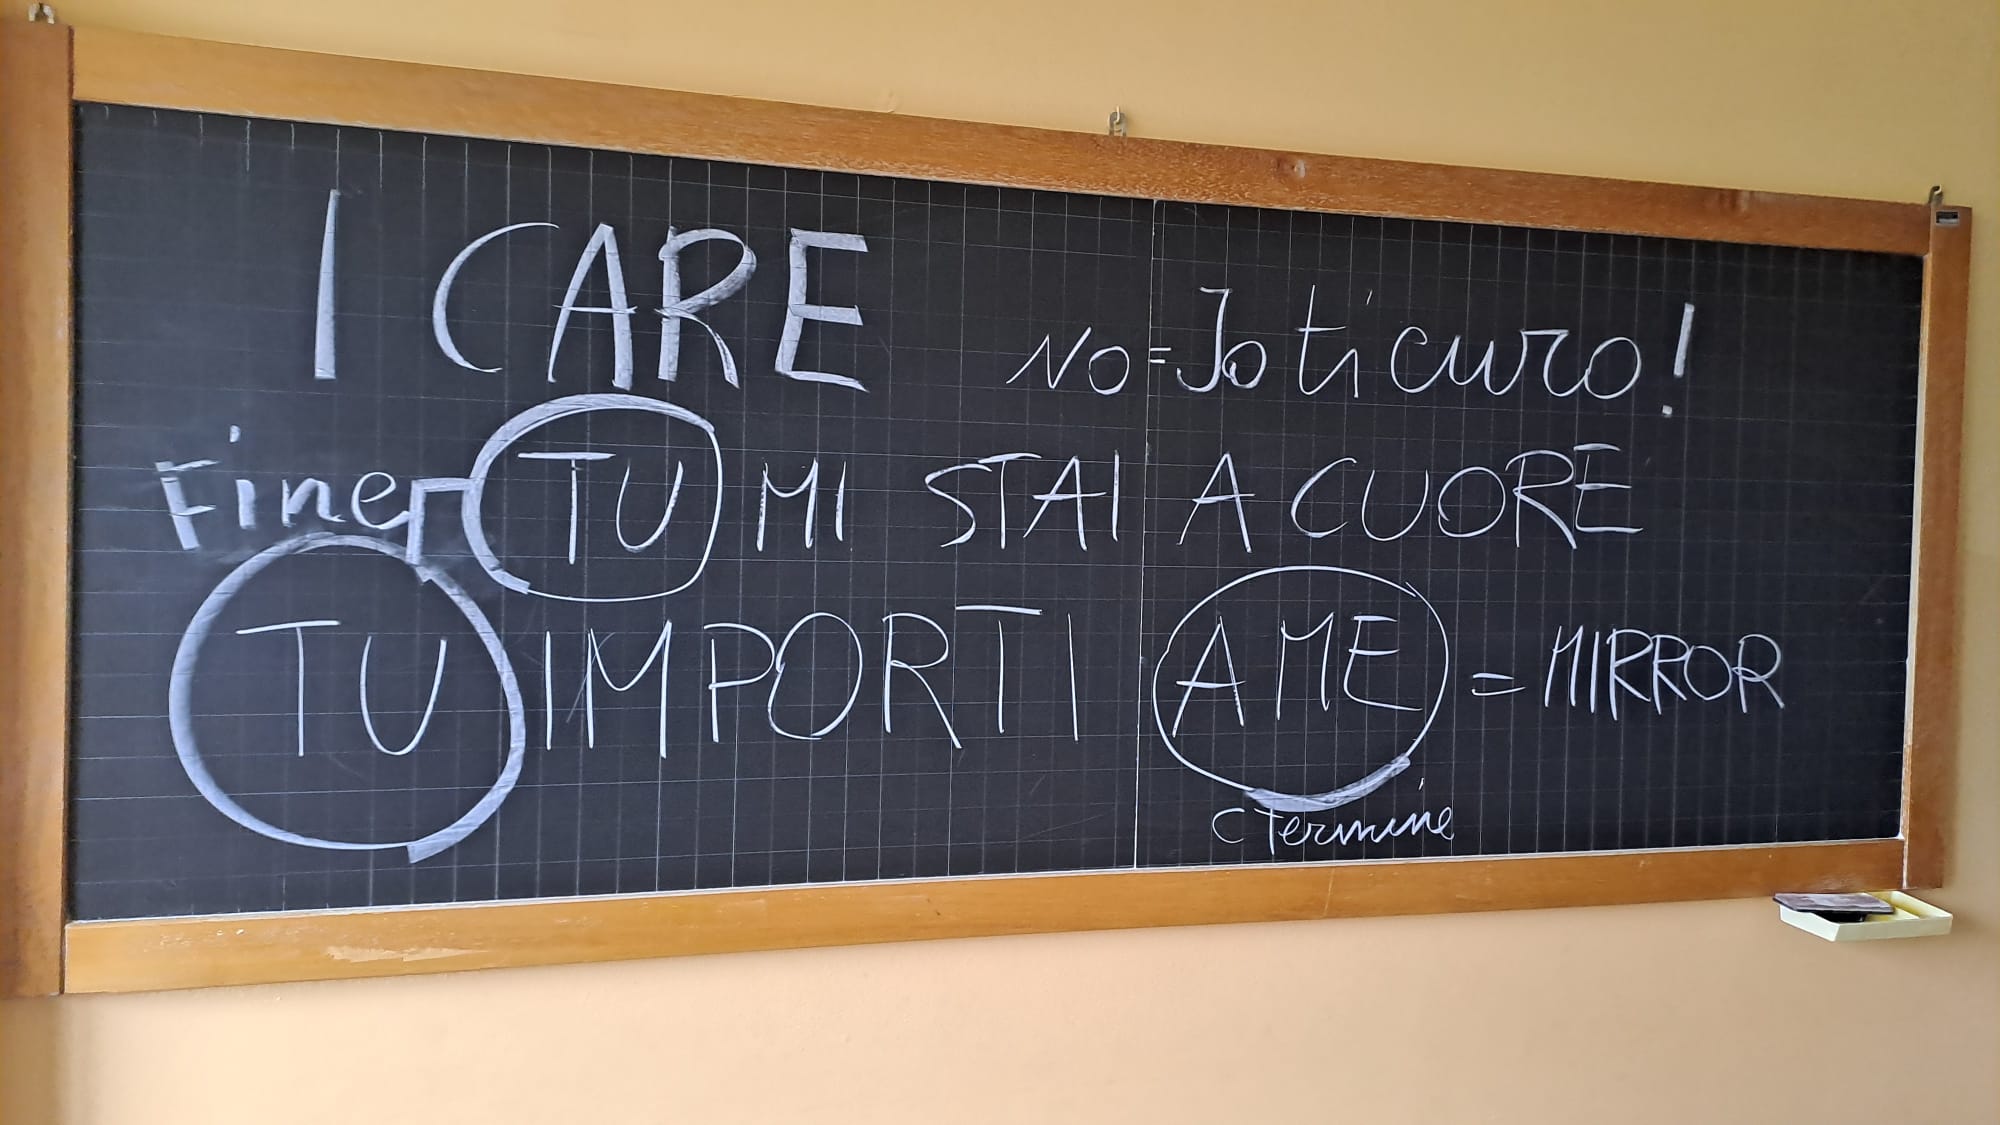 I CARE
NO = Io ti curo!
Fine TU MI STAI A CUORE
TU IMPORTI A ME = MIRROR
C Termine